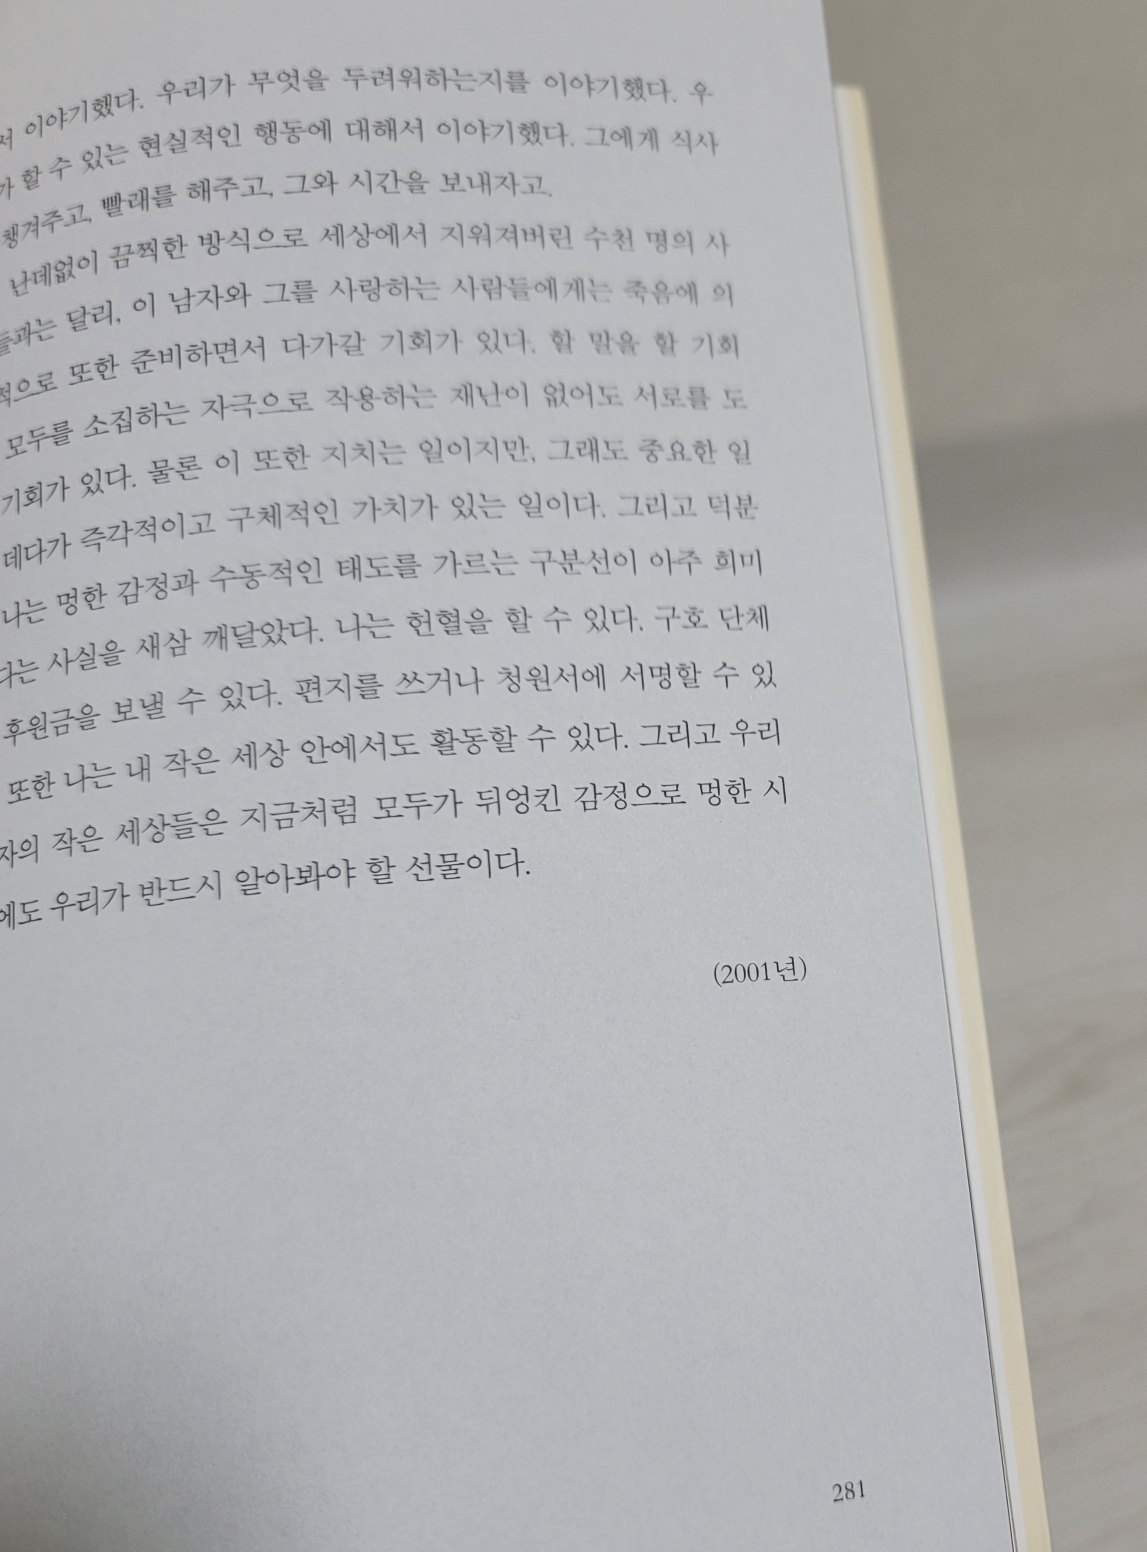 서 이야기했다. 우리가 무엇을 두려워하는지를 이야기했다. 우
가 할 수 있는 현실적인 행동에 대해서 이야기했다. 그에게 식사
챙겨주고, 빨래를 해주고, 그와 시간을 보내자고.
난데없이 끔찍한 방식으로 세상에서 지워져버린 수천 명의 사
들과는 달리, 이 남자와 그를 사랑하는 사람들에게는 죽음에 의
적으로 또한 준비하면서 다가갈 기회가 있다. 할 말을 할 기회
모두를 소집하는 자극으로 작용하는 재난이 없어도 서로를 도
기회가 있다. 물론 이 또한 지치는 일이지만, 그래도 중요한 일
데다가 즉각적이고 구체적인 가치가 있는 일이다. 그리고 덕분
나는 멍한 감정과 수동적인 태도를 가르는 구분선이 아주 희미
다는 사실을 새삼 깨달았다. 나는 헌혈을 할 수 있다. 구호 단체
후원금을 보낼 수 있다. 편지를 쓰거나 청원서에 서명할 수 있
또한 나는 내 작은 세상 안에서도 활동할 수 있다. 그리고 우리
자의 작은 세상들은 지금처럼 모두가 뒤엉킨 감정으로 멍한 시
에도 우리가 반드시 알아봐야 할 선물이다.
(2001년)
281